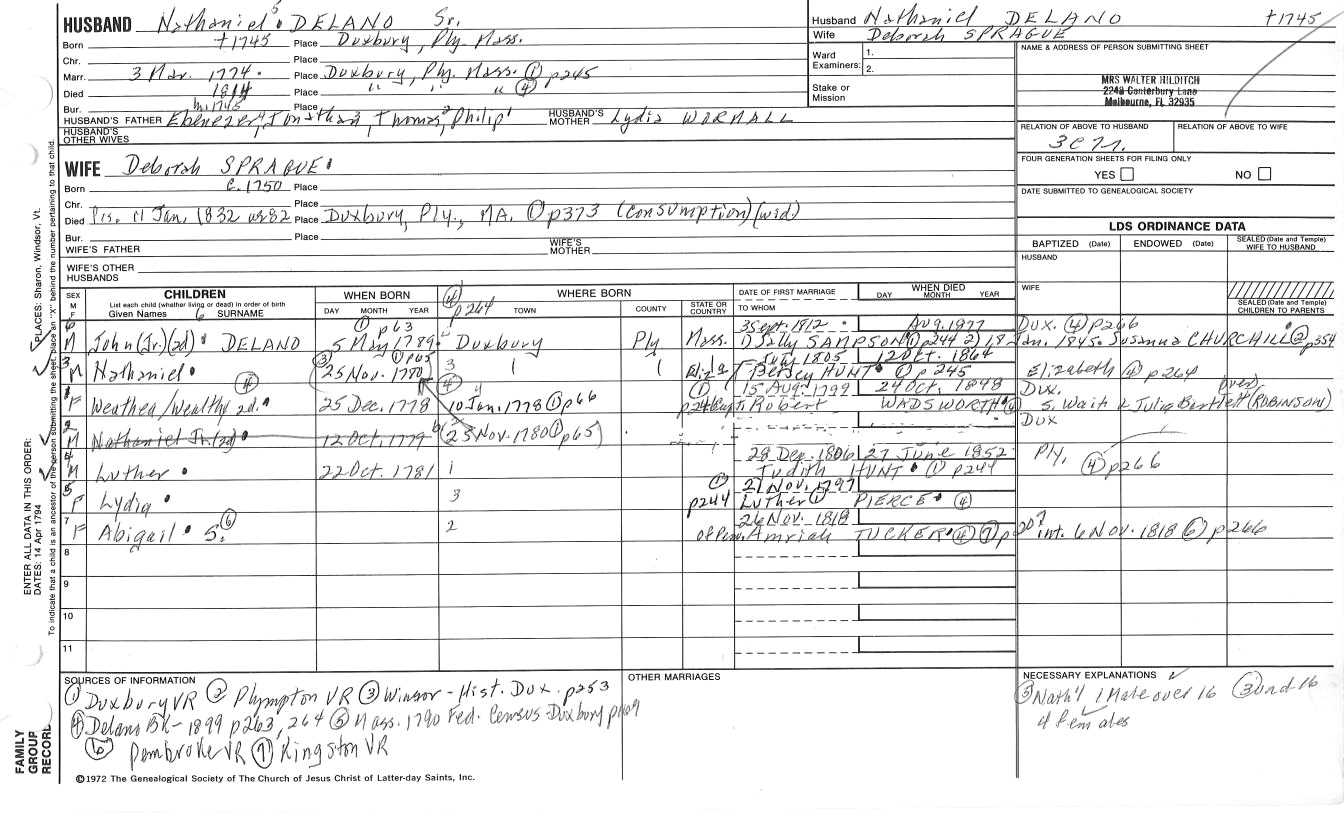 HUSBAND Nathaniel 5 DELANO Sr.
Born +1745 Place Duxbury, Ply. Mass.
Chr. Place
Marr. 3 Mar. 1774. Place Duxbury, Ply. Mass. ① p245
Died 1814 Place " " " ④
Bur. Place
HUSBAND'S FATHER Ebenezer4, Jonathan3, Thomas2, Philip1 HUSBAND'S MOTHER Lydia WORMALL
m. 1745
HUSBAND'S OTHER WIVES
WIFE Deborah SPRAGUE
Born c. 1750 Place
Chr. Place
Died 11 Jan. 1832 ae 82 Place Duxbury, Ply., MA. ① p373 (consumption) (wid)
Bur. Place
WIFE'S FATHER WIFE'S MOTHER
WIFE'S OTHER HUSBANDS
Husband Nathaniel DELANO +1745
Wife Deborah SPRAGUE
Ward Examiners: 1.
2.
Stake or Mission
NAME & ADDRESS OF PERSON SUBMITTING SHEET
MRS WALTER HILDITCH
2248 Canterbury Lane
Melbourne, FL 32935
RELATION OF ABOVE TO HUSBAND RELATION OF ABOVE TO WIFE
3C7r.
FOUR GENERATION SHEETS FOR FILING ONLY
YES NO
DATE SUBMITTED TO GENEALOGICAL SOCIETY
LDS ORDINANCE DATA
BAPTIZED (Date) ENDOWED (Date) SEALED (Date and Temple) WIFE TO HUSBAND
HUSBAND
WIFE
SEALED (Date and Temple) CHILDREN TO PARENTS
SEX M F
CHILDREN
List each child (whether living or dead) in order of birth
Given Names 6 SURNAME
WHEN BORN
DAY MONTH YEAR
④ p264
WHERE BORN
TOWN COUNTY STATE OR COUNTRY
DATE OF FIRST MARRIAGE
TO WHOM
WHEN DIED
DAY MONTH YEAR
6 M John (Jr.) (2d) DELANO ① p63 5 May 1789 Duxbury Ply Mass. 3 Sept. 1812 Aug. 1877 Dux. ④ p266
① Sally SAMPSON ① p244 2) 18 Jan. 1845 Susanna CHURCHILL ② p354
3 M Nathaniel ③ 25 Nov. 1780 ① p65 3 1 1 July 1805 12 Oct. 1864 Elizabeth ④ p264
Betsey HUNT ① p245
1 F Weathea/Wealthy 2d. ④ 25 Dec. 1778 ④ 10 Jan. 1778 ① p66 ① 15 Aug. 1799 24 Oct. 1848 Dux.
Robert WADSWORTH ④ S. Wait & Julia Bartlett (ROBINSON)
2 M Nathaniel Jr. (2d) 12 Oct. 1779 (25 Nov. 1780 ① p65) Dux
4 M Luther 22 Oct. 1781 1 28 Dec. 1806 27 June 1852 Ply, ④ p266
Judith HUNT ① p244
5 F Lydia 3 ① p244 21 Nov. 1797
Luther PIERCE ④
7 F Abigail S. ⑥ 2 of Pem. 26 Nov. 1818
Amriah TUCKER ④ ⑦ p207 int. 6 Nov. 1818 ⑥ p266
8
9
10
11
SOURCES OF INFORMATION
① Duxbury VR ② Plympton VR ③ Winsor - Hist. Dux. p253
④ Delano BK - 1899 p263, 264 ⑤ Mass. 1790 Fed. Census - Duxbury p169
⑥ Pembroke VR ⑦ Kingston VR
OTHER MARRIAGES
NECESSARY EXPLANATIONS
⑤ Nath'l 1 Male over 16 ③ und 16
4 Females
©1972 The Genealogical Society of The Church of Jesus Christ of Latter-day Saints, Inc.
FAMILY GROUP RECORD
ENTER ALL DATA IN THIS ORDER:
DATES: 14 Apr 1794 PLACES: Sharon, Windsor, Vt.
To indicate that a child is an ancestor of the person submitting the sheet, place an "X" behind the number pertaining to that child.